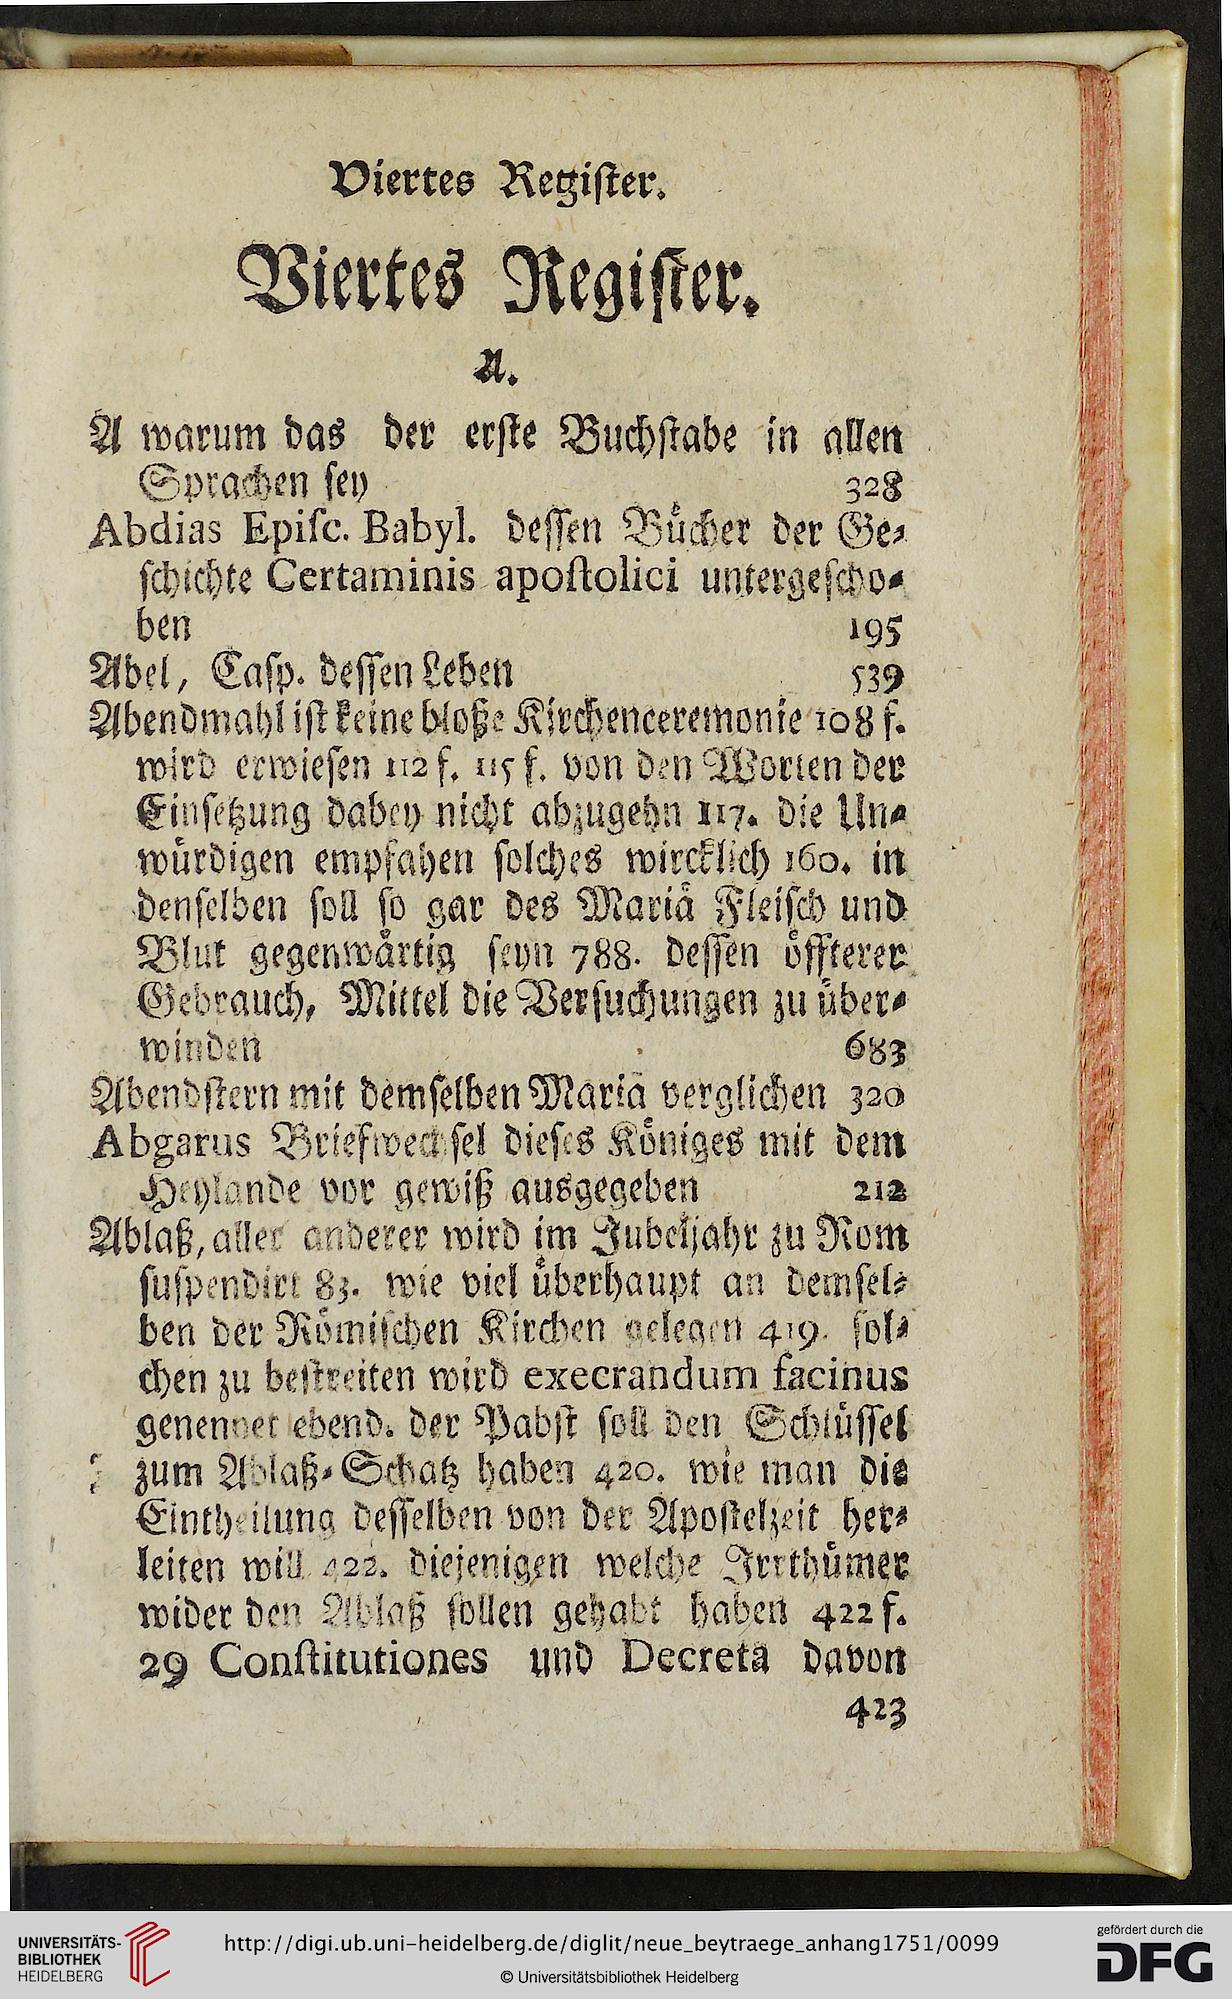 Viertes Regiſter.
Viertes Regiſter.
A.
A warum das der erſte Buchſtabe in allen
Sprachen ſey 328
Abdias Epiſc. Babyl. deſſen Bücher der Ge⸗
ſchichte Certaminis apoſtolici untergeſcho⸗
ben 195
Abel, Caſp. deſſen Leben 539
Abendmahl iſt keine bloße Kirchenceremonie 108 f.
wird erwieſen 112 f. 115 f. von den Worten der
Einſetzung dabey nicht abzugehn 117. die Un⸗
würdigen empfahen ſolches wircklich 160. in
denſelben ſoll ſo gar des Mariä Fleiſch und
Blut gegenwärtig ſeyn 788. deſſen öffterer
Gebrauch, Mittel die Verſuchungen zu über⸗
winden 683
Abendſtern mit demſelben Maria verglichen 320
Abgarus Briefwechſel dieſes Königes mit dem
Heylande vor gewiß ausgegeben 212
Ablaß, aller anderer wird im Jubeljahr zu Rom
ſuſpendirt 83. wie viel überhaupt an demſel⸗
ben der Römiſchen Kirchen gelegen 419. ſol⸗
chen zu beſtreiten wird execrandum facinus
genennet ebend. der Pabſt ſoll den Schlüſſel
zum Ablaß⸗Schatz haben 420. wie man die
Eintheilung deſſelben von der Apoſtelzeit her⸗
leiten will 422. diejenigen welche Irrthümer
wider den Ablaß ſollen gehabt haben 422 f.
29 Conſtitutiones und Decreta davon
423
UNIVERSITÄTS-
BIBLIOTHEK
HEIDELBERG
http://digi.ub.uni-heidelberg.de/diglit/neue_beytraege_anhang1751/0099
© Universitätsbibliothek Heidelberg
gefördert durch die
DFG